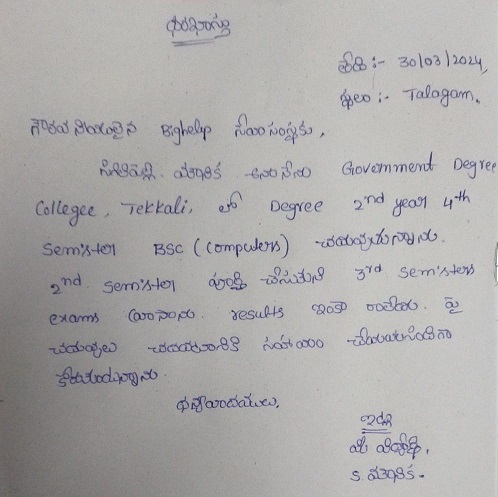 ధరఖాస్తు
తేది :- 30/03/2024,
స్థలం :- Talagam.
గౌరవనీయులైన Bighelp సేవా సంస్థకు,
మౌళిక అను నేను Government Degree
Collegee, Tekkali, లో Degree 2nd year 4th
Semister BSC (computers) చదువుతున్నాను.
2nd Semister పూర్తి చేసుకుని 3rd Semisters
exams రాసాను. results ఇంకా రాలేదు. పై
చదువులు చదవడానికి సహాయం చేయవలసిందిగా
కోరుకుంటున్నాను.
ధన్యవాదములు,
ఇట్లు
మీ విద్యార్థి,
S. మౌళిక.